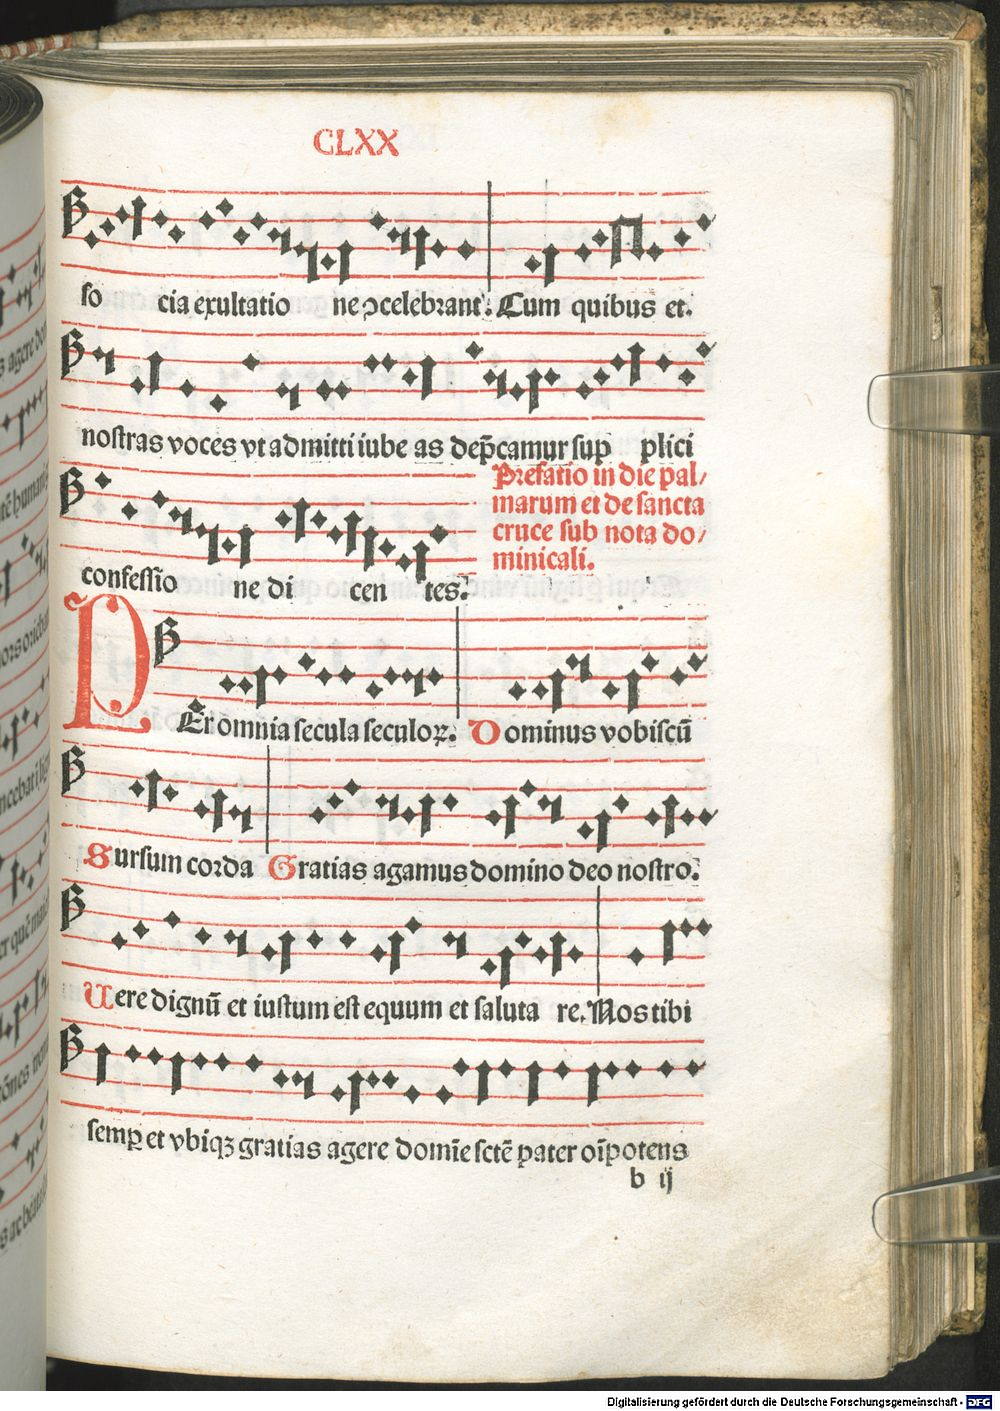 CLXX
so cia exultatio ne ɔcelebrant. Cum quibus et.
nostras voces vt admitti iube as dep̄camur sup plici
confessio ne di cen tes.
Prefatio in die pal/
marum et de sancta
cruce sub nota do/
minicali.
PEr omnia secula seculoꝝ. Dominus vobiscū
Sursum corda Gratias agamus domino deo nostro.
Uere dignū et iustum est equum et saluta re. Nos tibi
semꝑ et vbiqꝫ gratias agere domīe sctē pater oīpotens
b ij
Digitalisierung gefördert durch die Deutsche Forschungsgemeinschaft - DFG